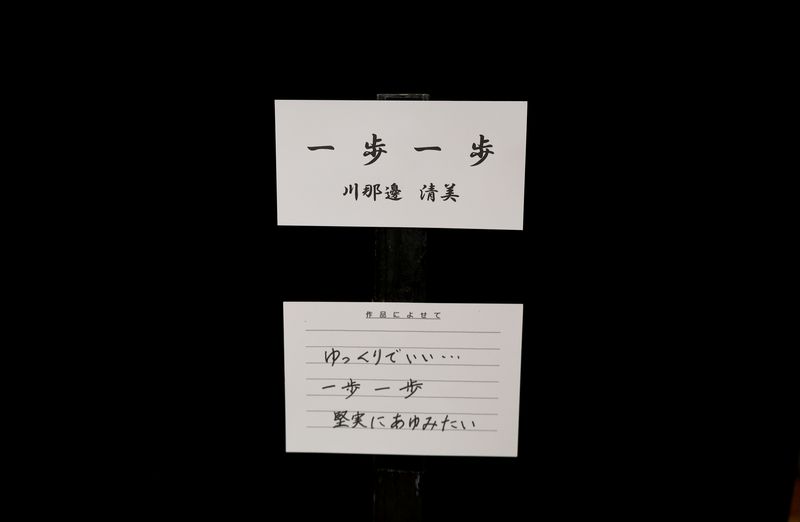 一歩一歩
川那邊 清美
作品によせて
ゆっくりでいい…
一歩一歩
堅実にあゆみたい